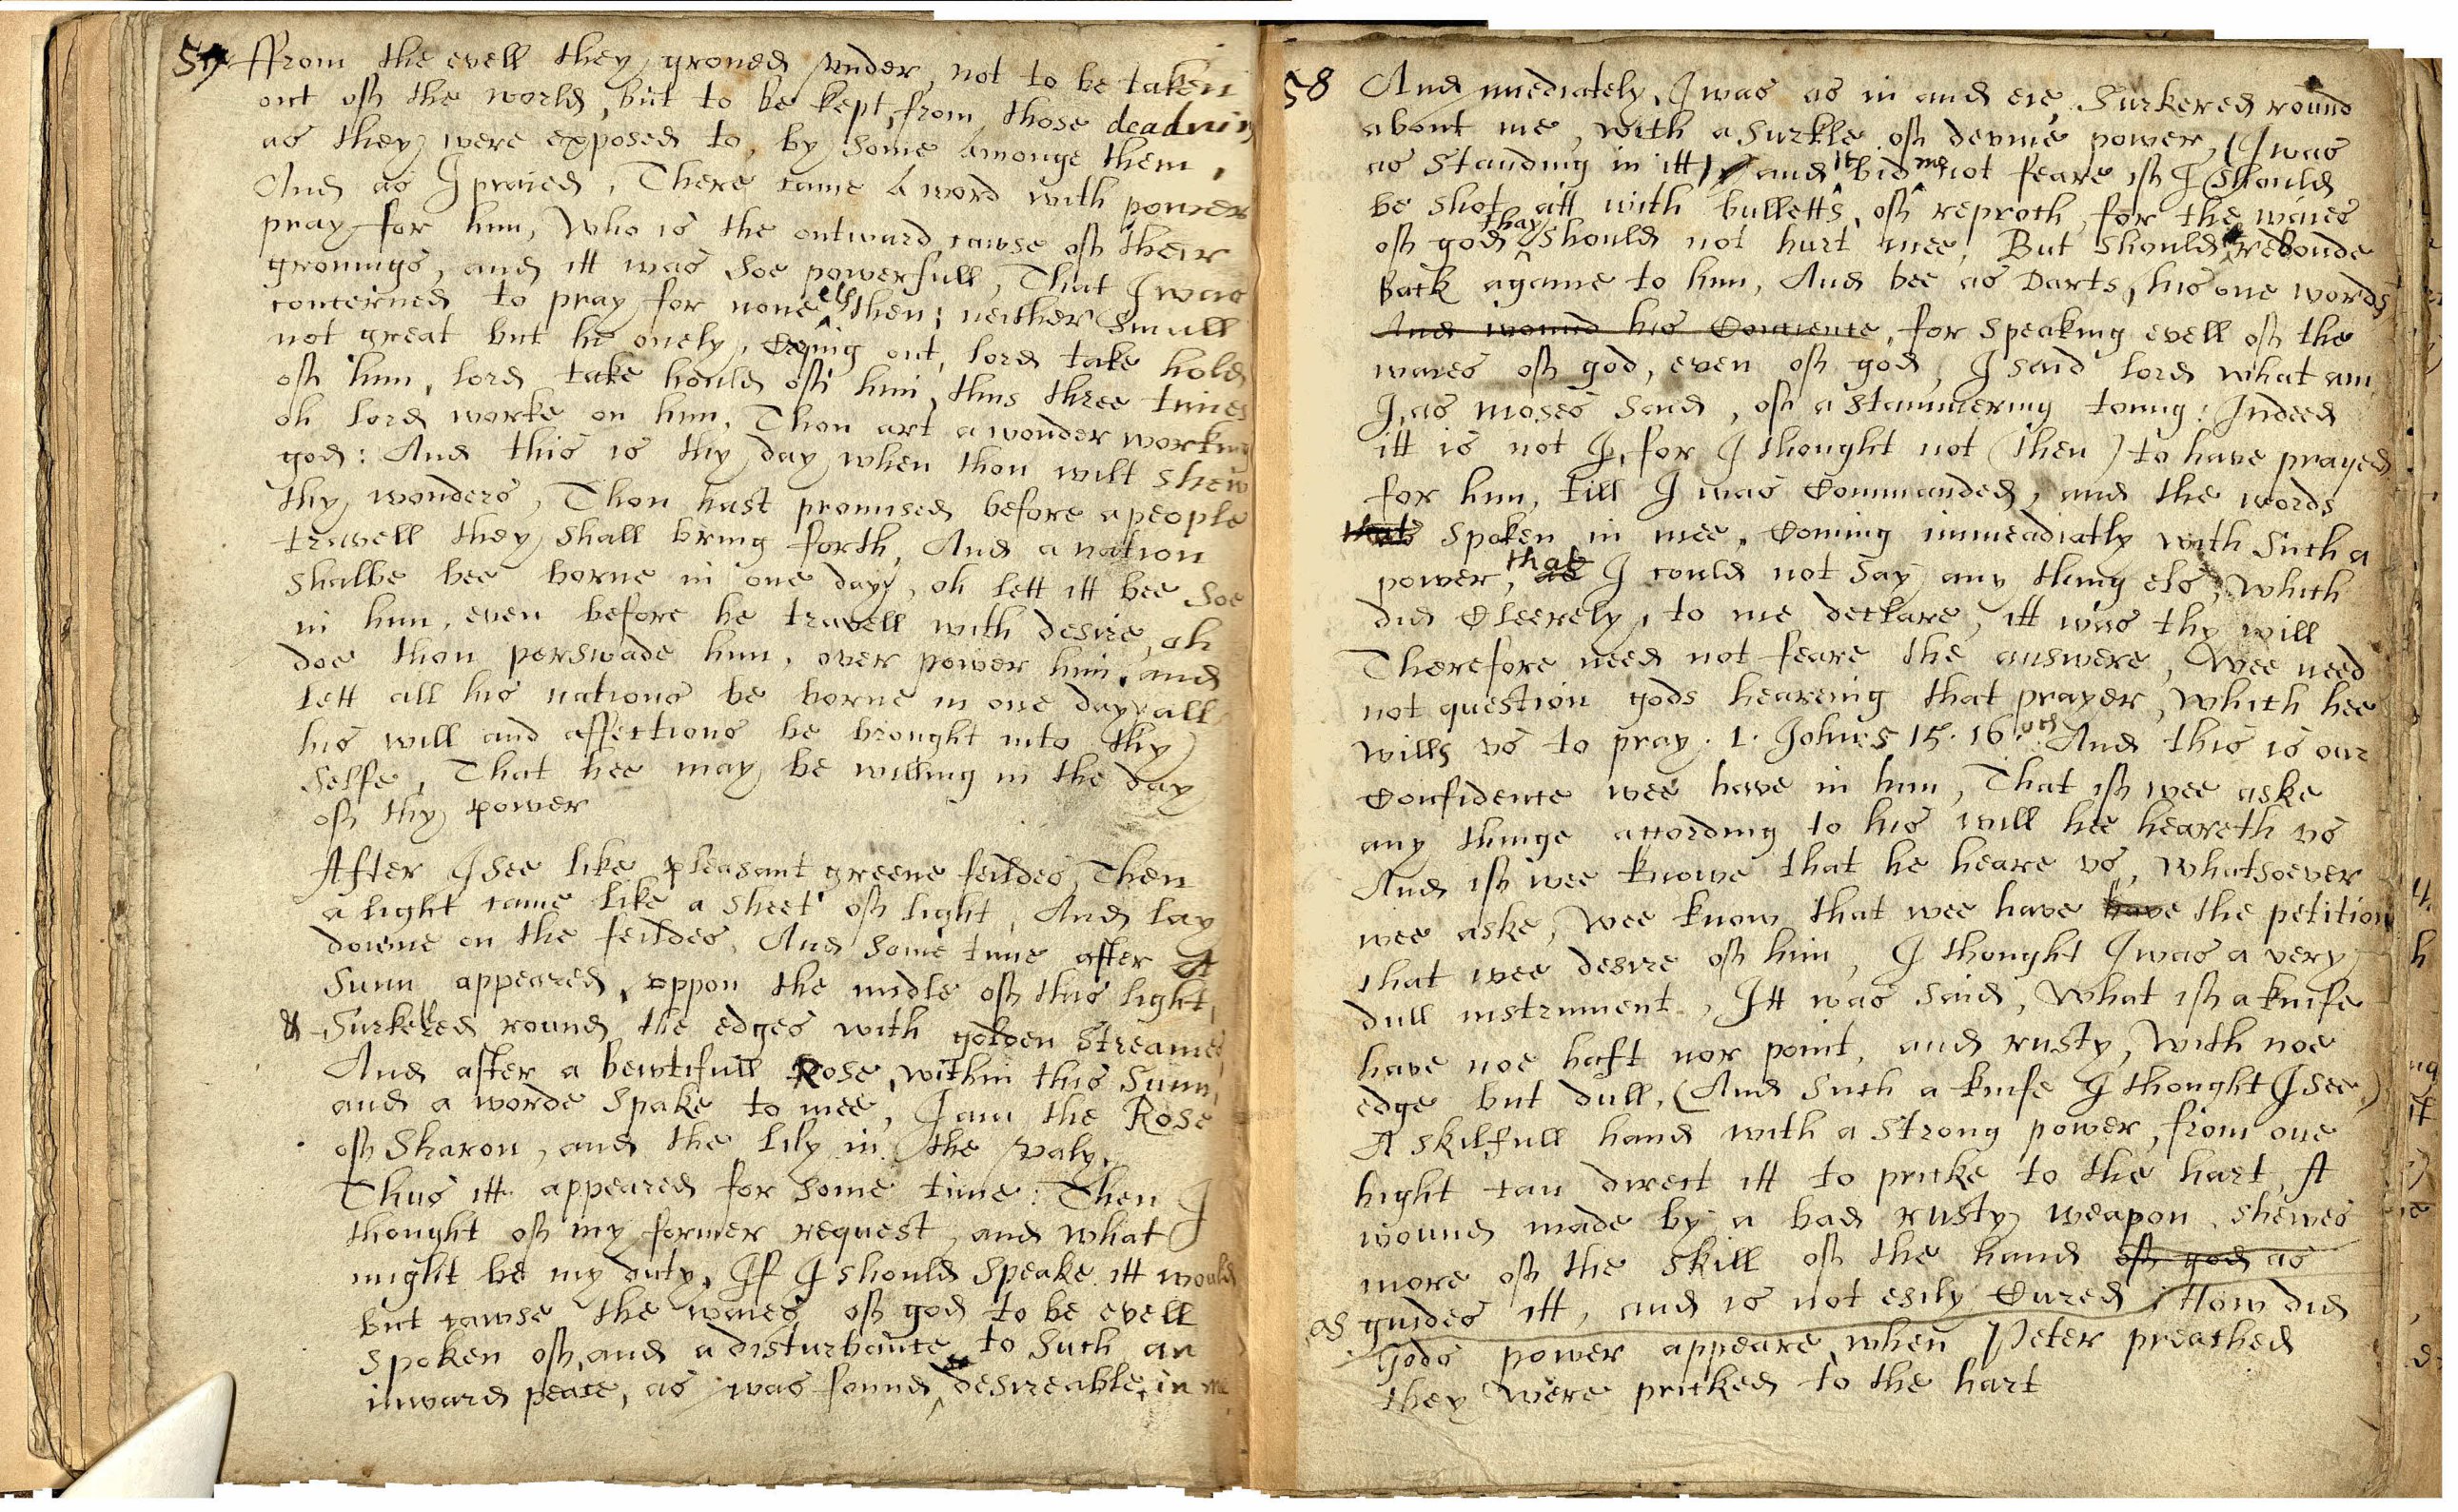 57 ffrom the evell they groned vnder, not to be taken
out off the world, but to be kept, from those deadning
as they were exposed to, by some Amonge them,
And as I praied, There came A word with power
pray for him, Who is the outward cawse off their
gronings, and itt was soe powerfull, That I was
concerned to pray for none els then; neither Smull
not great but he onely, Crying out, lord take hold
off him, lord take hould off him, thus three times
oh lord worke on him, Thou art a wonder working
god: And this is thy day when thou wilt shew
thy wonders, Thou hast promised before a people
travell they shall bring forth, And a nation
shalbe bee borne in one day, oh lett itt bee soe
in him, even before he travell with desire, oh
doe thou perswade him, over power him, and
lett all his nations be borne in one day, all
his will and affections be brought into thy
selfe, That hee may be willing in the day
off thy power
After I see like pleasant greene feildes, Then
a light came like a sheet off light, And lay
downe on the feildes, And some time after A
Sunn appeared, vppon the midle off this light,
& Surkelled round the edges with golden streames
And after a bewtifull Rose, within this Sunn,
and a worde spake to mee, I am the Rose
off Sharon, and the lily in the valy.
Thus itt appeared for some time: Then I
thought off my former request, and what
might be my duty, If I should speake itt would
but cawse the waies off god to be evell
spoken off, and a disturbance to such an
inward peace, as was found desireable, in me
58 And imediately, I was as in and eie Surkered round
about me, with a Surkle off devine power, (I was
as standing in itt) and it bid me not feare iff I should
be shot att with bulletts, off reproch, for the waies
off god they should not hurt mee, But should rebonde
Back againe to him, And bee as Darts, his one words
And wound his Concience, for speaking evell off the
waies off god, even off god, I said lord what am
I, as moses said, off a stammering toung: Indeed
itt is not I, for I thought not (then) to have prayed
for him, till I was Commanded, and the words
spoken in mee, Coming immeadiatly with such a
power, that I could not say any thing els, Which
did Cleerely, to me declare, itt was thy will
Therefore need not feare the answere, Wee need
not question gods heareing that prayer, Which hee
wills vs to pray. 1. John: 5 15. 16. And this is our
Confidence wee have in him, That iff wee aske
any thinge according to his will hee heareth vs
And iff wee knowe that he heare vs, Whatsoever
wee aske, Wee know that wee have have the petition
that wee desire off him, I thought I was a very
dull instrument, Itt was said, What iff a knife
have noe haft nor point, and rusty, With noe
edge but dull, (And such a knife I thought I see,)
A skilfull hand with a strong power, from one
hight can direct itt to pricke to the hart, A
wound made by a bad rusty weapon, shewes
more off the skill off the hand off god as
as guides itt, and is not esily Cured, How did
Gods power appeare, when Peter preached
they were pricked to the hart